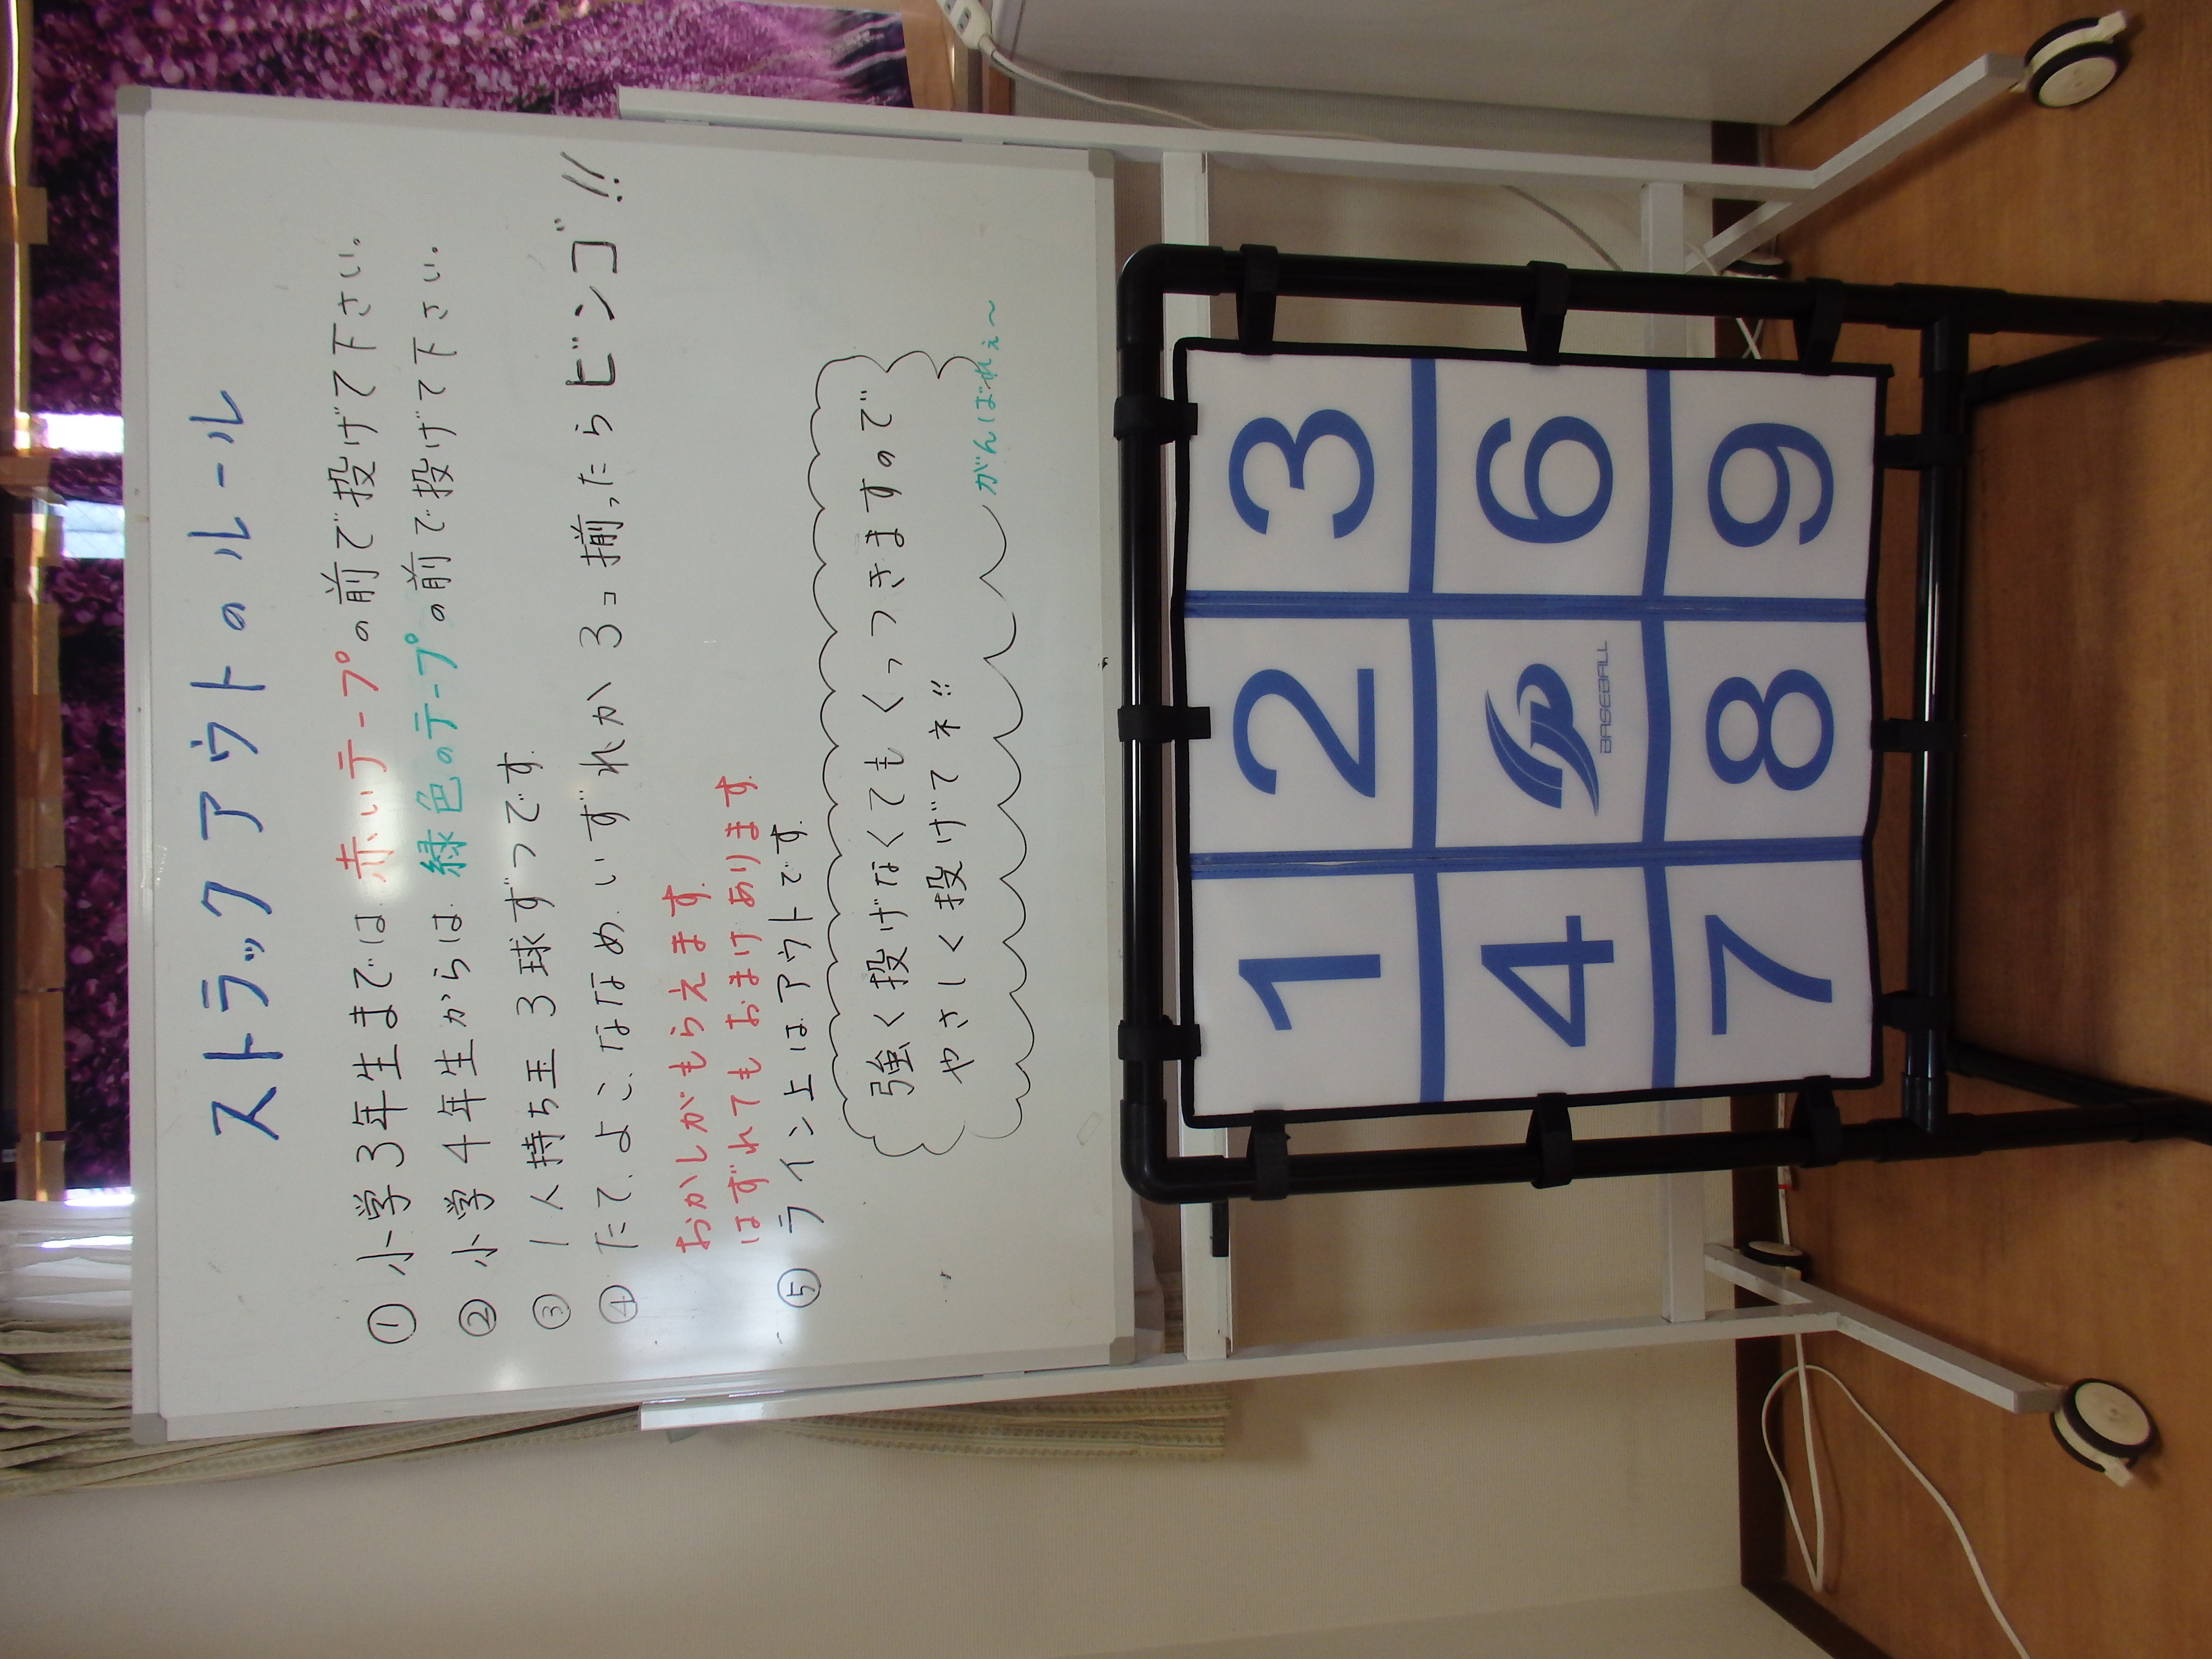 ストラックアウトのルール
① 小学3年生までは 赤いテープの前で投げて下さい。
② 小学4年生からは 緑色のテープの前で投げて下さい。
③ 1人持ち玉 3球ずつです。
④ たて、よこ、ななめ、いずれか 3コ揃ったらビンゴ!!
おかしがもらえます。
はずれても おまけ あります。
⑤ ライン上はアウトです。
強く投げなくても くっつきますので
やさしく投げてネ!!
がんばれぇ〜
1 2 3
4 BASEBALL 6
7 8 9